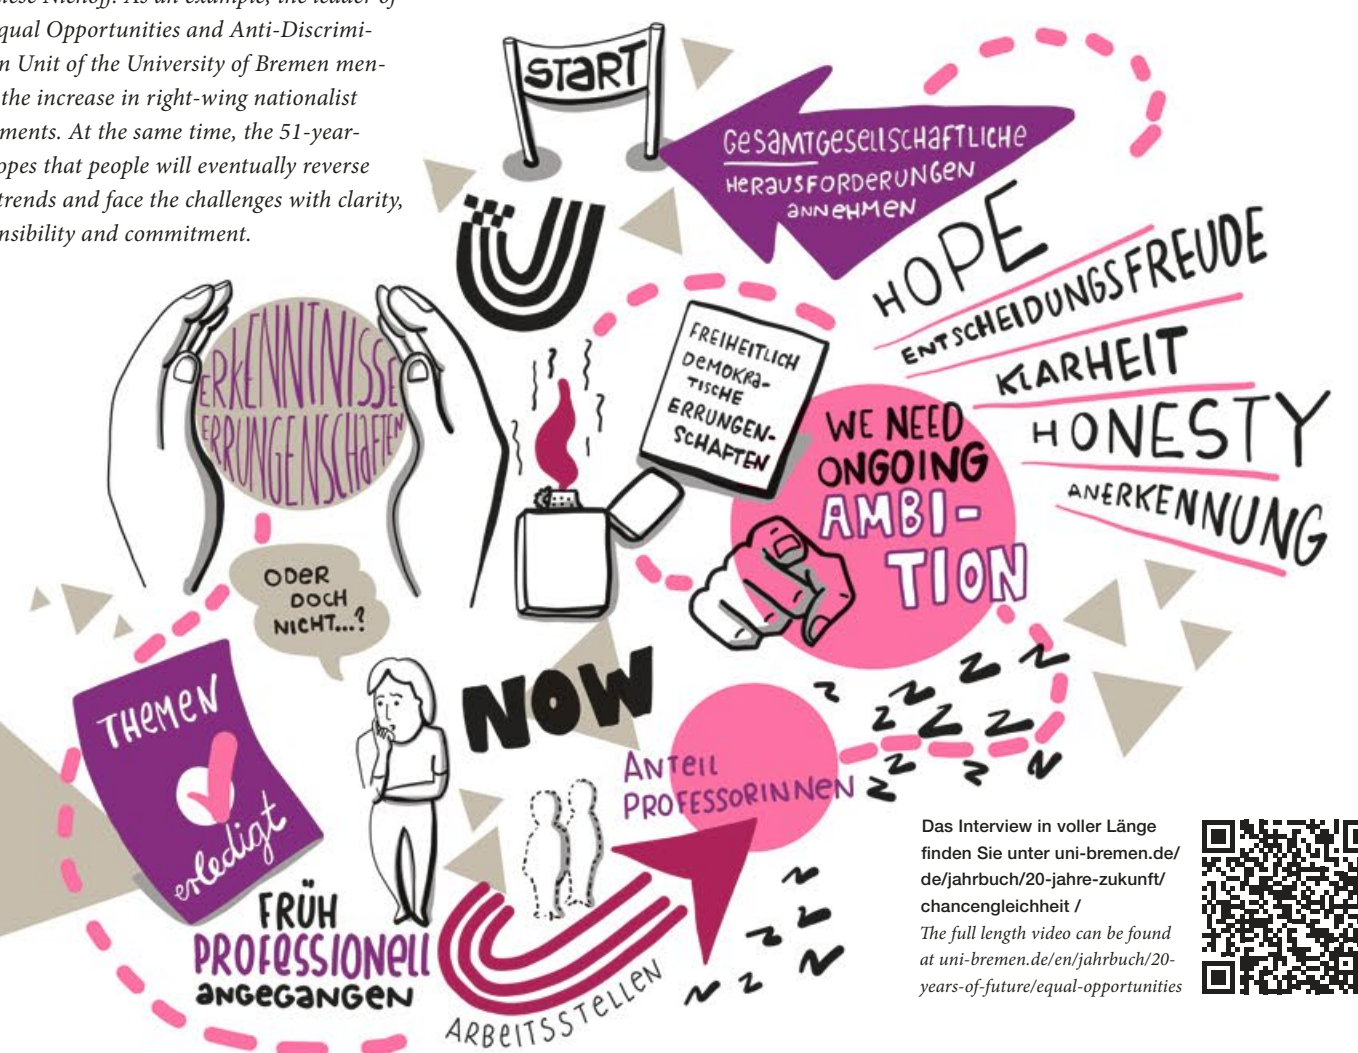 qual Opportunities and Anti-Discrimi-
n Unit of the University of Bremen men-
the increase in right-wing nationalist
ments. At the same time, the 51-year-
opes that people will eventually reverse
trends and face the challenges with clarity,
nsibility and commitment.
START
GESAMTGESELLSCHAFTLICHE
HERAUSFORDERUNGEN
ANNEHMEN
HOPE
ENTSCHEIDUNGSFREUDE
KLARHEIT
HONESTY
ANERKENNUNG
ERKENNTNISSE
ERRUNGENSCHAFTEN
FREIHEITLICH
DEMOKRA-
TISCHE
ERRUNGEN-
SCHAFTEN
WE NEED
ONGOING
AMBI-
TION
ODER
DOCH
NICHT...?
THEMEN
erledigt
FRÜH
PROFESSIONELL
ANGEGANGEN
NOW
ANTEIL
PROFESSORINNEN
ARBEITSSTELLEN
Das Interview in voller Länge
finden Sie unter uni-bremen.de/
de/jahrbuch/20-jahre-zukunft/
chancengleichheit /
The full length video can be found
at uni-bremen.de/en/jahrbuch/20-
years-of-future/equal-opportunities